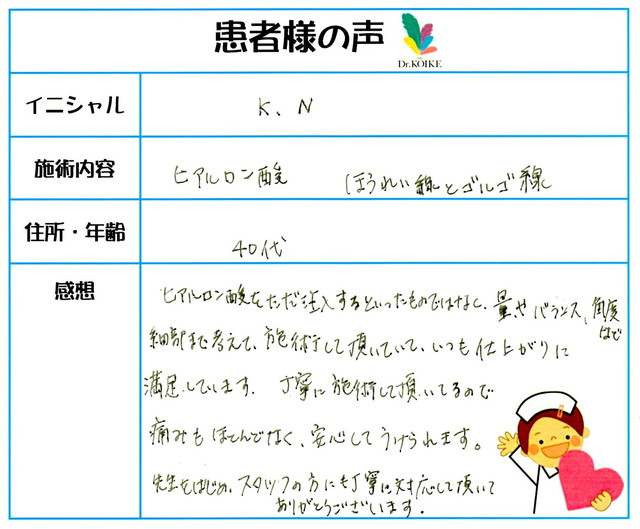 患者様の声
Dr.KOIKE
イニシャル
K、N
施術内容
ヒアルロン酸 ほうれい線とゴルゴ線
住所・年齢
40代
感想
ヒアルロン酸をただ注入するといったものではなく、量やバランス、角度など
細部まで考えて、施術して頂いていて、いつも仕上がりに
満足しています。 丁寧に施術して頂いてるので
痛みもほとんどなく、安心してうけられます。
先生をはじめ、スタッフの方にも丁寧に対応して頂いて
ありがとうございます.